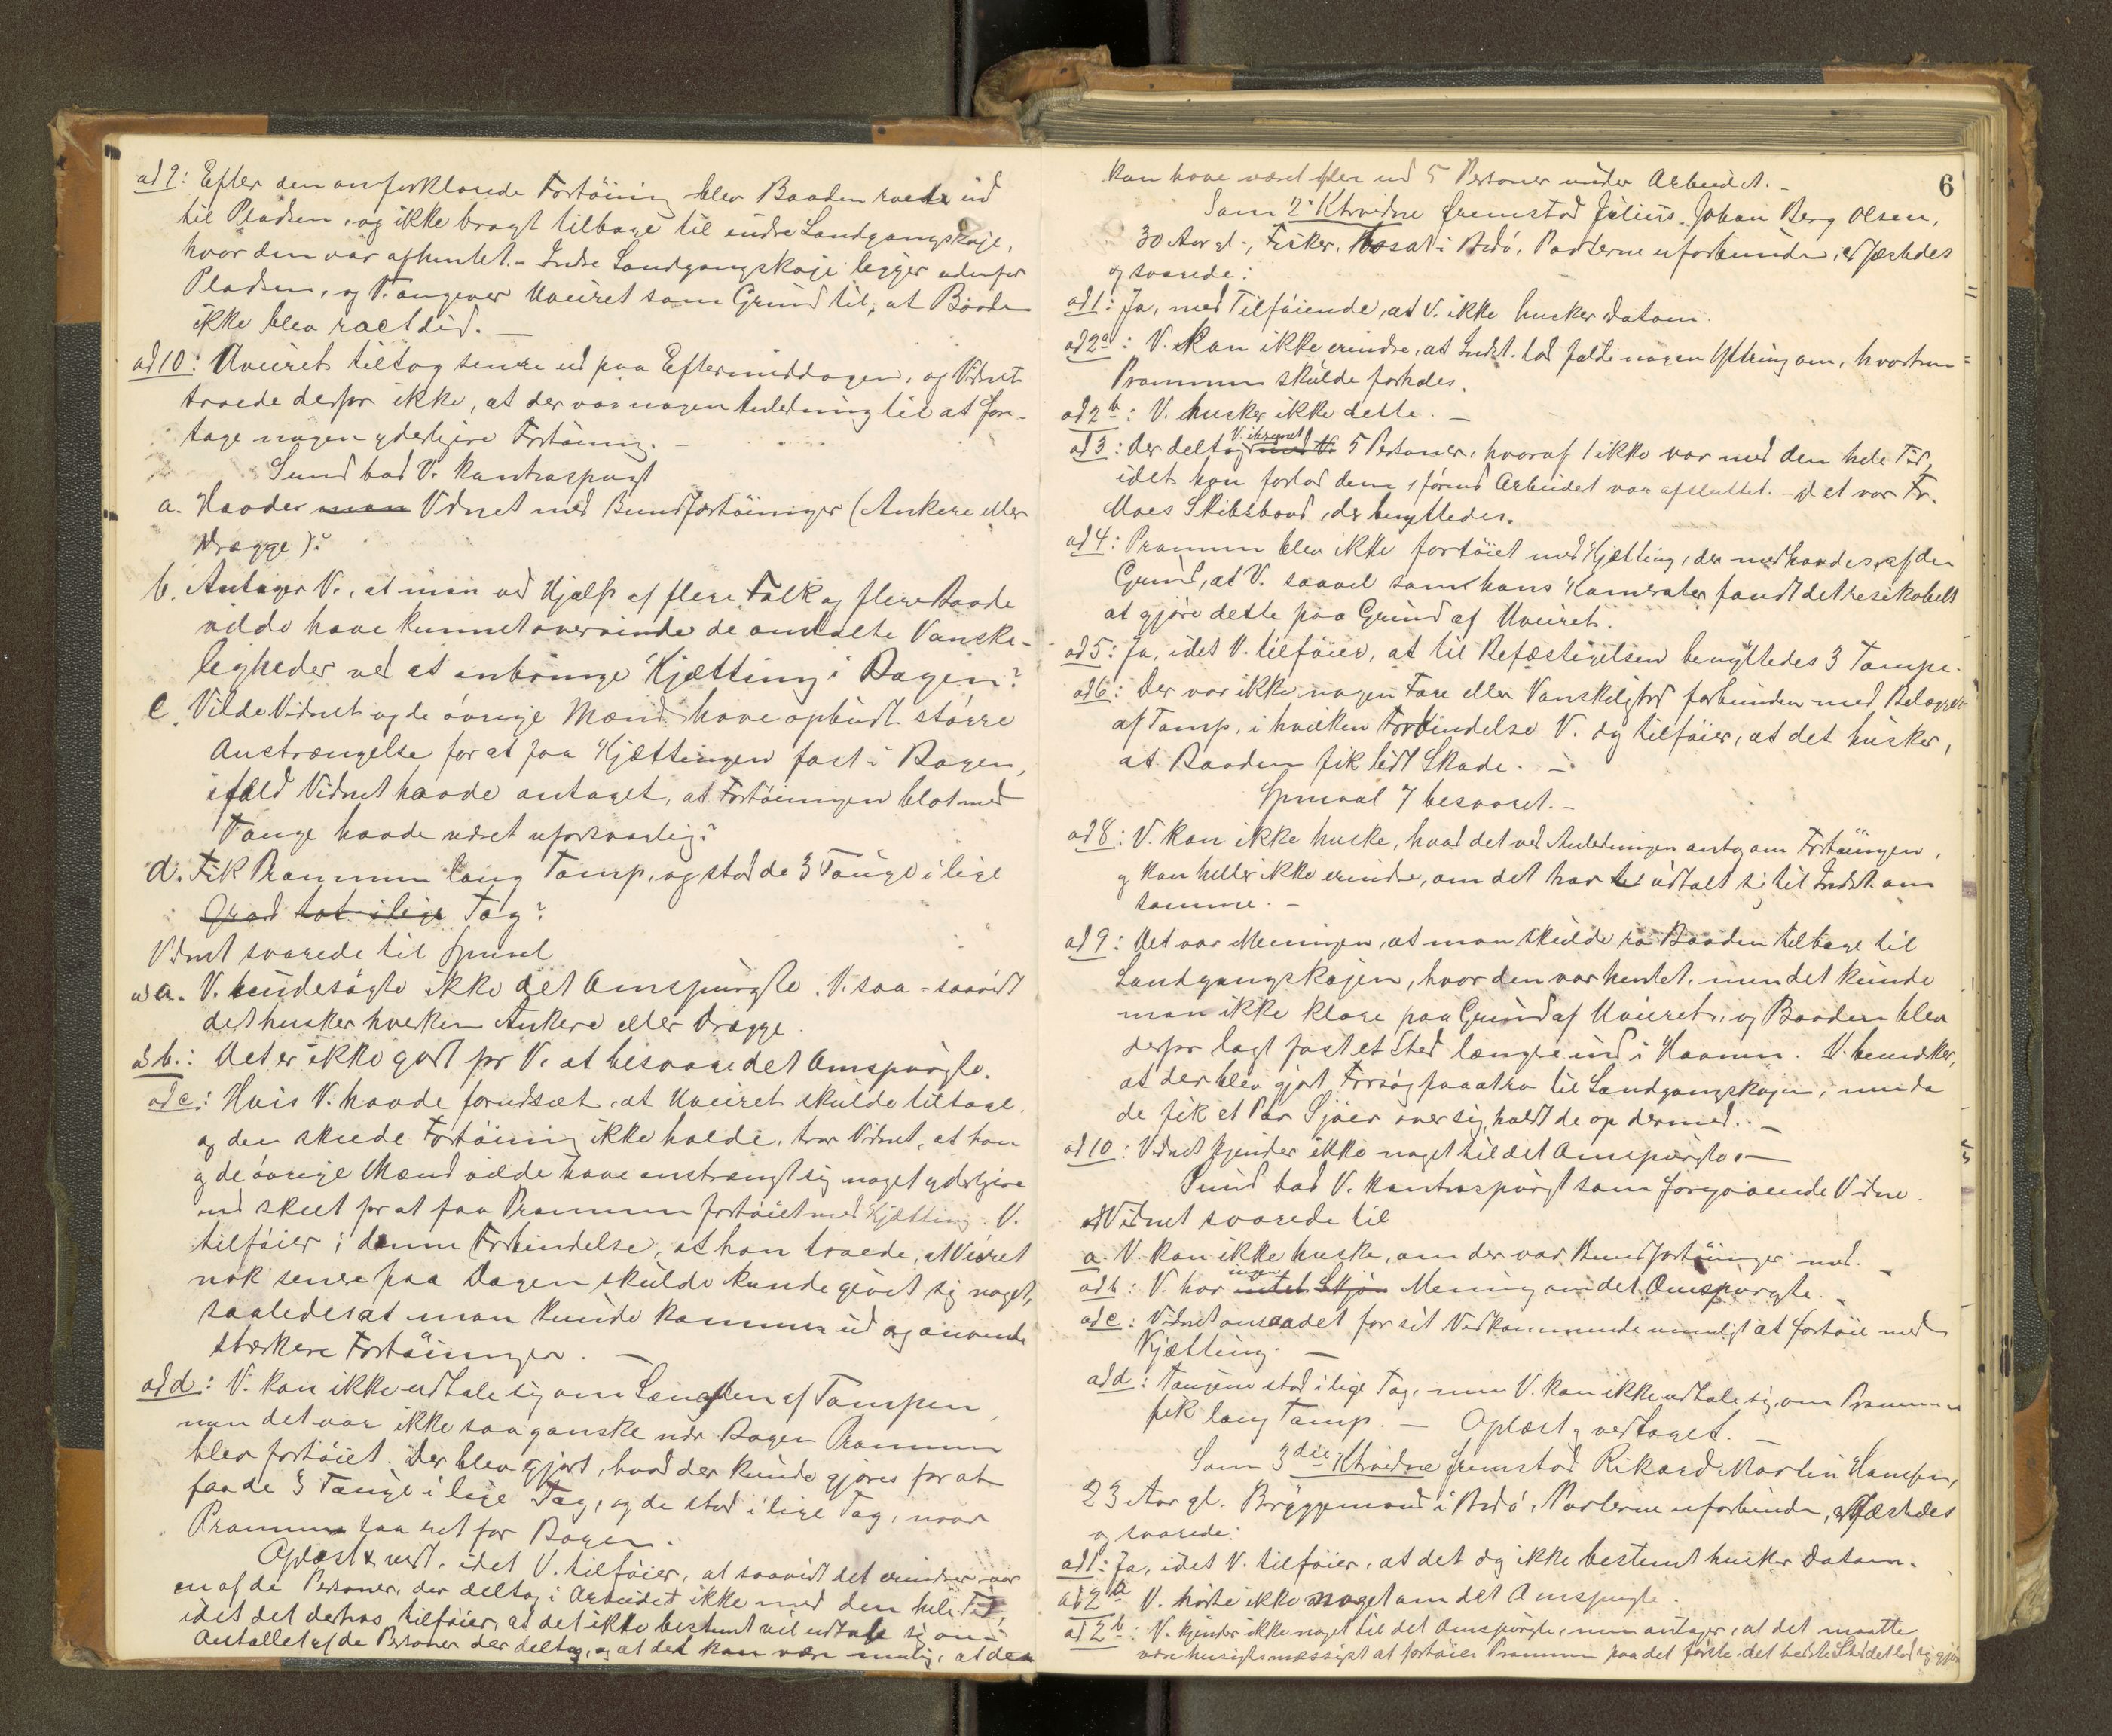 ad 9: Efter den anforklarede Fortøining blev Baaden roet ind
til Pladsen, og ikke bragt tilbage til indre Landgangskaje,
hvor den var afhentet. - Indre Landgangskaje ligger udenfor
Pladsen, og V. angiver Uveiret som Grund til, at Baaden
ikke blev roet did. -
ad 10: Uveiret tiltog senere ud paa Eftermiddagen, og Vidnet
troede derfor ikke, at der var nogen Anledning til at fore-
tage nogen yderligere Fortøining. -
Sund bad V. kontraspurgt
a. Havde man Vidnet med Bundfortøininger (Ankere eller
Drægge)?
b. Antager V., at man ved Hjælp af flere Folk og flere Baade
vilde have kunnet overvinde de omtalte Vanske-
ligheder ved at anbringe Kjætting i Bøgen?
c. Vilde Vidnet og de øvrige Mænd have opbudt større
Anstrængelse for at faa Kjættingen fast i Bøgen,
ifald Vidnet havde antaget, at Fortøiningen blot med
Tauge havde været uforsvarlig?
d. Fik Prammen lang Tamp, og stod de 3 Tauge i lige
Grad tot i lige Tag?
Vidnet svarede til Spmaal
ad a. V. undersøgte ikke det Omspurgte. V. saa - saavidt
det husker hverken Ankere eller Drægge.
ad b.: Det er ikke godt for V. at besvare det Omspurgte.
ad c: Hvis V. havde forudsæt, at Uveiret skulde tiltage,
og den skeede Fortøining ikke holde, tror Vidnet, at han
og de øvrige Mænd vilde have anstrængt sig noget yderligere
end skeet for at faa Prammen fortøiet med Kjætting. V.
tilføier i denne Forbindelse, at han troede, at Veiret
nok senere paa Dagen skulde kunde givet sig noget,
saaledes at man kunde komme ud og anvende
stærkere Fortøininger. -
ad d: V. kan ikke udtale sig om Længden af Tampen,
men det var ikke saa ganske nær Bøgen Prammen
blev fortøiet. Der blev gjort, hvad der kunde gjøres for at
faa de 3 Tauge i lige Tag, og de stod i lige Tag, naar
Prammen laa ret for Bøgen.
Oplæst & vedt. idet V. tilføier, at saavidt det erindrer var
en af de Personer, der deltog i Arbeidet ikke med den hele Tid,
idet det derhos tilføier, at det ikke bestemt vil udtale sig om
Antallet af de Personer der deltog, og at det kan være mulig, at der
6
kan have været flere end 5 Personer under Arbeidet. -
Som 2. Ktrvidne fremstod Julius Johan Berg Olsen,
30 Aar gl., Fisker, Bosat i Bodø, Parterne uforbunden, edfæstedes
og svarede:
ad 1: Ja, med Tilføiende, at V. ikke husker Datoen.
ad 2a: V. kan ikke erindre, at Indst. lod falde nogen Yttring om, hvordan
Prammen skulde forhales.
ad 2b: V. husker ikke dette. -
ad 3: Der deltog med V. V. iberegnet 5 Personer, hvoraf 1 ikke var med den hele Tid,
idet han forlod dem, førend Arbeidet var afsluttet. - Det var Fr.
Moes Skibsbaad, der benyttedes.
ad 4: Prammen blev ikke fortøiet med Kjætting, der medhavdes, af den
Grund, at V. saavel som hans Kamerater fandt det resikabelt
at gjøre dette paa Grund af Uveiret.
ad 5: Ja, idet V. tilføier, at til Befæstigelsen benyttedes 3 Tampe.
ad 6: Der var ikke nogen Fare eller Vanskelighed forbunden med
af Tamp, i hvilken Forbindelse V. dg tilføier, at det husker,
at Baaden fik lidt Skade. -
Spmaal 7 besvaret. -
ad 8: V. kan ikke huske, hvad det ved Anledningen antog om Fortøiningen,
og kan heller ikke erindre, om det har udtalt sig til Indst. om
samme. -
ad 9: Det var Meningen, at man skulde ro Baaden tilbage til
Landgangskajen, hvor den var hentet, men det kunde
man ikke klare paa Grund af Uveiret, og Baaden blev
derfor lagt fast et Sted længre ind i Havnen. V. bemærker,
at der blev gjort Forsøg paa at ro til Landgangskajen, men da
de fik et Par Sjøer over sig, holdt de op dermed. -
ad 10: Vidnet kjender ikke noget til det Omspurgte. -
Sund bad V. kontraspurgt som foregaaende Vidne.
Vidnet svarede til
a. V. kan ikke huske, om der var Bundfortøininger med. -
ad b: V. har intet Skjøn ingen Mening om det Omspurgte. -
ad c: Vidnet ansaa det for sit Vedkommende umuligt at fortøie med
Kjætting. -
ad d: Taugene stod i lige Tag, men V. kan ikke udtale sig, om Prammen
fik lang Tamp. - Oplæst og vedtaget. -
Som 3die Ktrvidne fremstod Rikard Martin Hansen,
23 Aar gl. Bryggemand i Bodø, Parterne uforbunden, edfæstedes
og svarede:
ad 1: Ja, idet V. tilføier, at det dg ikke bestemt husker Datoen.
ad 2a V. hørte ikke noget om det Omspurgte.
ad 2b: V. kjender ikke noget til det Omspurgte, men antager, at det maatte
være hensigtsmæssigst at fortøie Prammen paa det første, det bedste Sted det lod sig gjøre